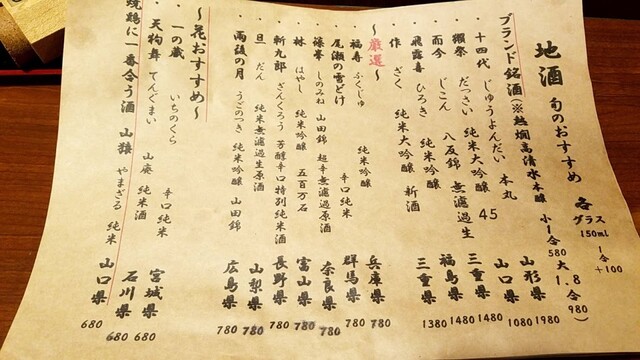 地酒 旬のおすすめ 各グラス150ml 1合+100
ブランド銘酒(※熱燗高清水本醸 小1合580 大1.8合980)
・十四代 じゅうよんだい 本丸 山形県 1980
・獺祭 だっさい 純米大吟醸 45 山口県 1080
・而今 じこん 八反錦 無濾過生 三重県 1480
・飛露喜 ひろき 純米吟醸 福島県 1480
・作 ざく 純米大吟醸 新酒 三重県 1380
〜厳選〜
・福寿 ふくじゅ 純米吟醸 兵庫県 780
・尾瀬の雪どけ 辛口純米 群馬県 780
・篠峯 しのみね 山田錦 超辛無濾過原酒 奈良県 780
・林 はやし 純米吟醸 五百万石 富山県 780
・斬九郎 ざんくろう 芳醇辛口特別純米酒 長野県 780
・旦 だん 純米無濾過生原酒 山梨県 780
・雨後の月 うごのつき 純米吟醸 山田錦 広島県 780
〜花おすすめ〜
・一の蔵 いちのくら 辛口純米 宮城県 680
・天狗舞 てんぐまい 山廃 純米酒 石川県 680
焼鶏に一番合う酒 山猿 やまざる 純米 山口県 680